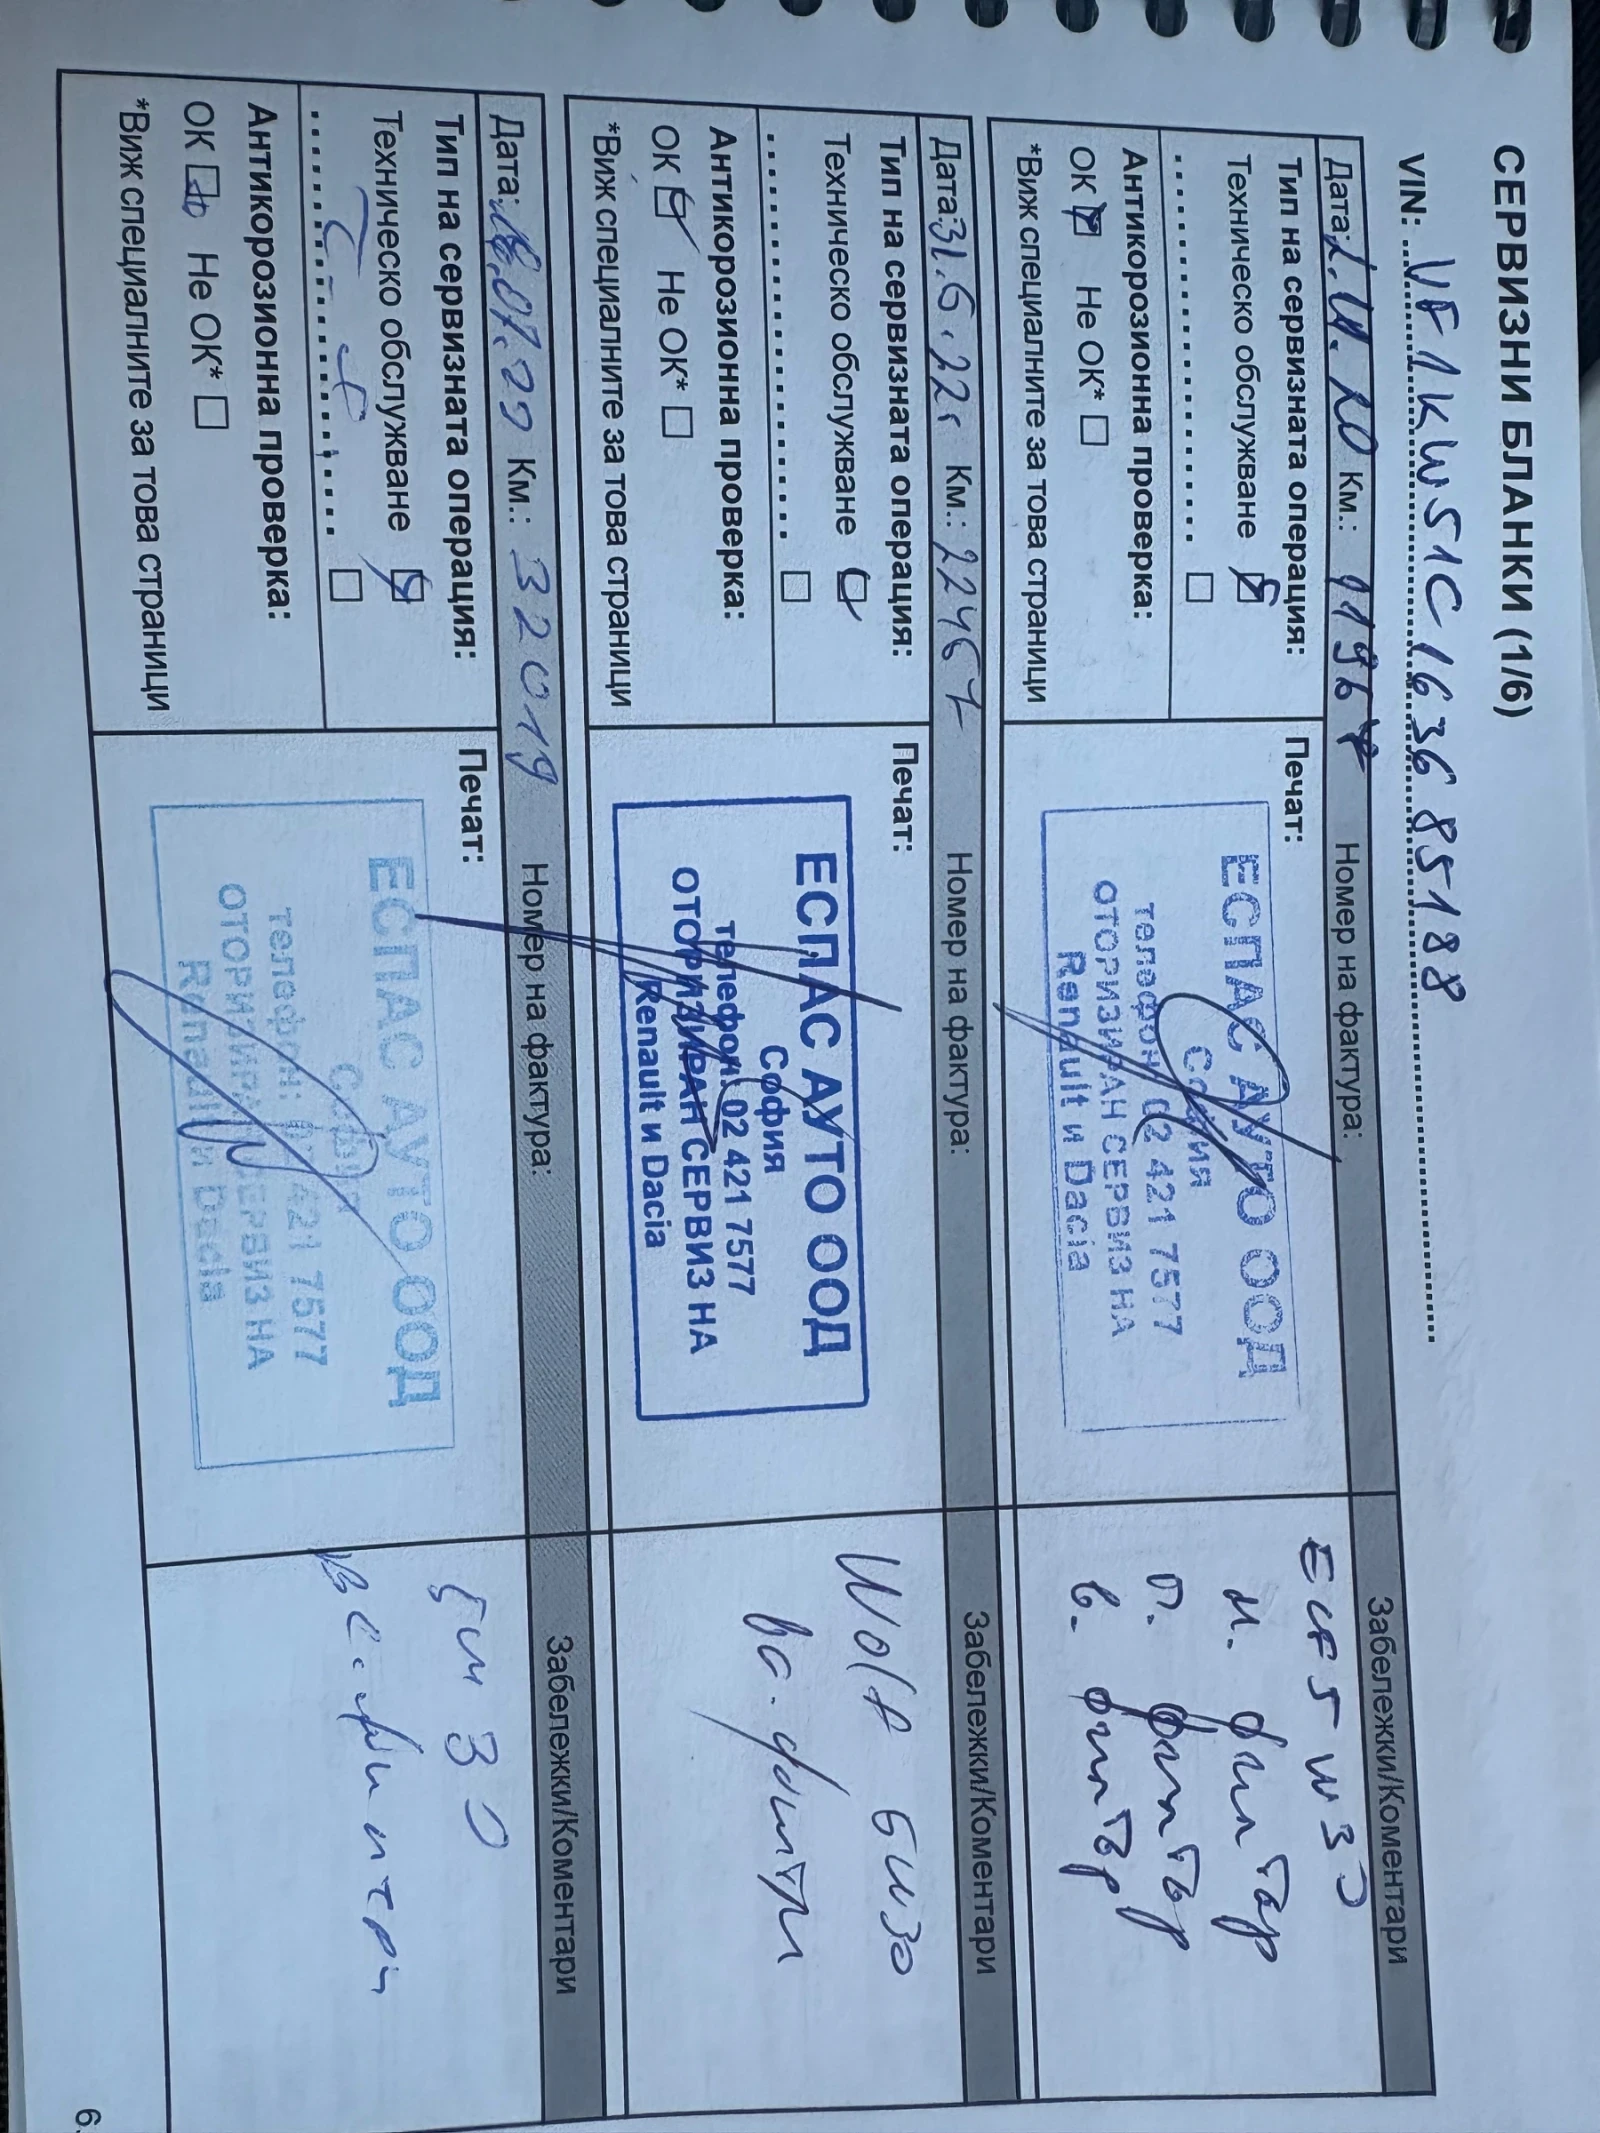 СЕРВИЗНИ БЛАНКИ (1/6)
VIN: VF1KW51C163685188
Дата: 2.11.20 Км.: 11967 Номер на фактура: Забележки/Коментари
Тип на сервизната операция:
Техническо обслужване
Антикорозионна проверка:
ОК Не ОК*
*Виж специалните за това страници
Печат:
ЕСПАС АУТО ООД
София
телефон: 02 421 7577
ОТОРИЗИРАН СЕРВИЗ НА
Renault и Dacia
5w30
м. филтър
п. филтър
в. филтър
Дата: 31.6.22г Км.: 22467 Номер на фактура: Забележки/Коментари
Тип на сервизната операция:
Техническо обслужване
Антикорозионна проверка:
ОК Не ОК*
*Виж специалните за това страници
Печат:
ЕСПАС АУТО ООД
София
телефон: 02 421 7577
ОТОРИЗИРАН СЕРВИЗ НА
Renault и Dacia
Wolf 5w30
Дата: 07. Км.: 32019 Номер на фактура: Забележки/Коментари
Тип на сервизната операция:
Техническо обслужване
Антикорозионна проверка:
ОК Не ОК*
*Виж специалните за това страници
Печат:
ЕСПАС АУТО ООД
София
телефон: 02 421 7577
ОТОРИЗИРАН СЕРВИЗ НА
Renault и Dacia
5w30
6.